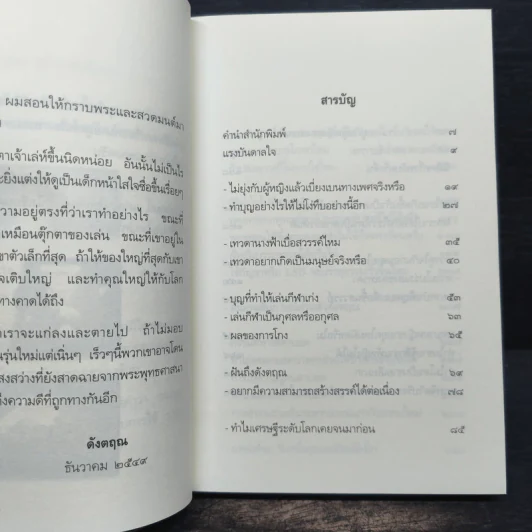 ผมสอนให้กราบพระและสวดมนต์มา
าเจ้าเล่ห์ขึ้นนิดหน่อย อันนั้นไม่เป็นไร
ะยิ่งแต่งให้ดูเป็นเด็กหน้าใสใจซื่อขึ้นเรื่อยๆ
วามอยู่ตรงที่ว่าเราทำอย่างไร ขณะที่
เหมือนตุ๊กตาของเล่น ขณะที่เขาอยู่ใน
าตัวเล็กที่สุด ถ้าให้ของใหญ่ที่สุดกับเขา
จเติบใหญ่ และทำคุณใหญ่ให้กับโลก
ทางคาดได้ถึง
เราจะแก่ลงและตายไป ถ้าไม่มอบ
นรุ่นใหม่แต่เนิ่นๆ เร็วๆนี้พวกเขาอาจโดน
สงสว่างที่ยังสาดฉายจากพระพุทธศาสนา
ถึงความดีที่ถูกทางกันอีก
ดังตฤณ
ธันวาคม ๒๕๔๙
สารบัญ
คำนำสำนักพิมพ์ ๗
แรงบันดาลใจ ๙
- ไม่ยุ่งกับผู้หญิงแล้วเบี่ยงเบนทางเพศจริงหรือ ๑๙
- ทำบุญอย่างไรให้ไม่โง่ทึบอย่างนี้อีก ๒๗
- เทวดานางฟ้าเบื่อสวรรค์ไหม ๓๕
- เทวดาอยากเกิดเป็นมนุษย์จริงหรือ ๔๐
- บุญที่ทำให้เล่นกีฬาเก่ง ๕๓
- เล่นกีฬาเป็นกุศลหรืออกุศล ๖๓
- ผลของการโกง ๖๕
- ฝันถึงดังตฤณ ๖๙
- อยากมีความสามารถสร้างสรรค์ได้ต่อเนื่อง ๗๘
- ทำไมเศรษฐีระดับโลกเคยจนมาก่อน ๘๕